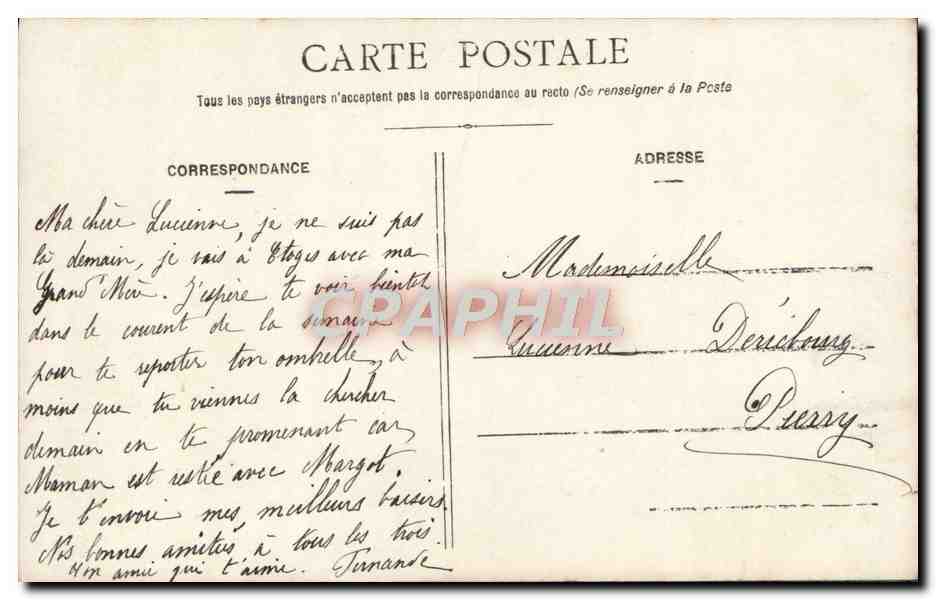 CARTE POSTALE
Tous les pays étrangers n'acceptent pas la correspondance au recto (Se renseigner à la Poste
CORRESPONDANCE
Ma chère Lucienne, je ne suis pas
là demain, je vais à Etoges avec ma
Grand'Mère. J'espère te voir bientôt
dans le courent de la semaine
pour te reporter ton ombrelle, à
moins que tu viennes la chercher
demain en te promenant car
Maman est restée avec Margot.
Je t'envoie mes meilleurs baisers.
Nos bonnes amitiés à tous les trois.
Ton amie qui t'aime. Fernande
ADRESSE
Mademoiselle
Lucienne Déricbourg
Pierry
CPAPHIL